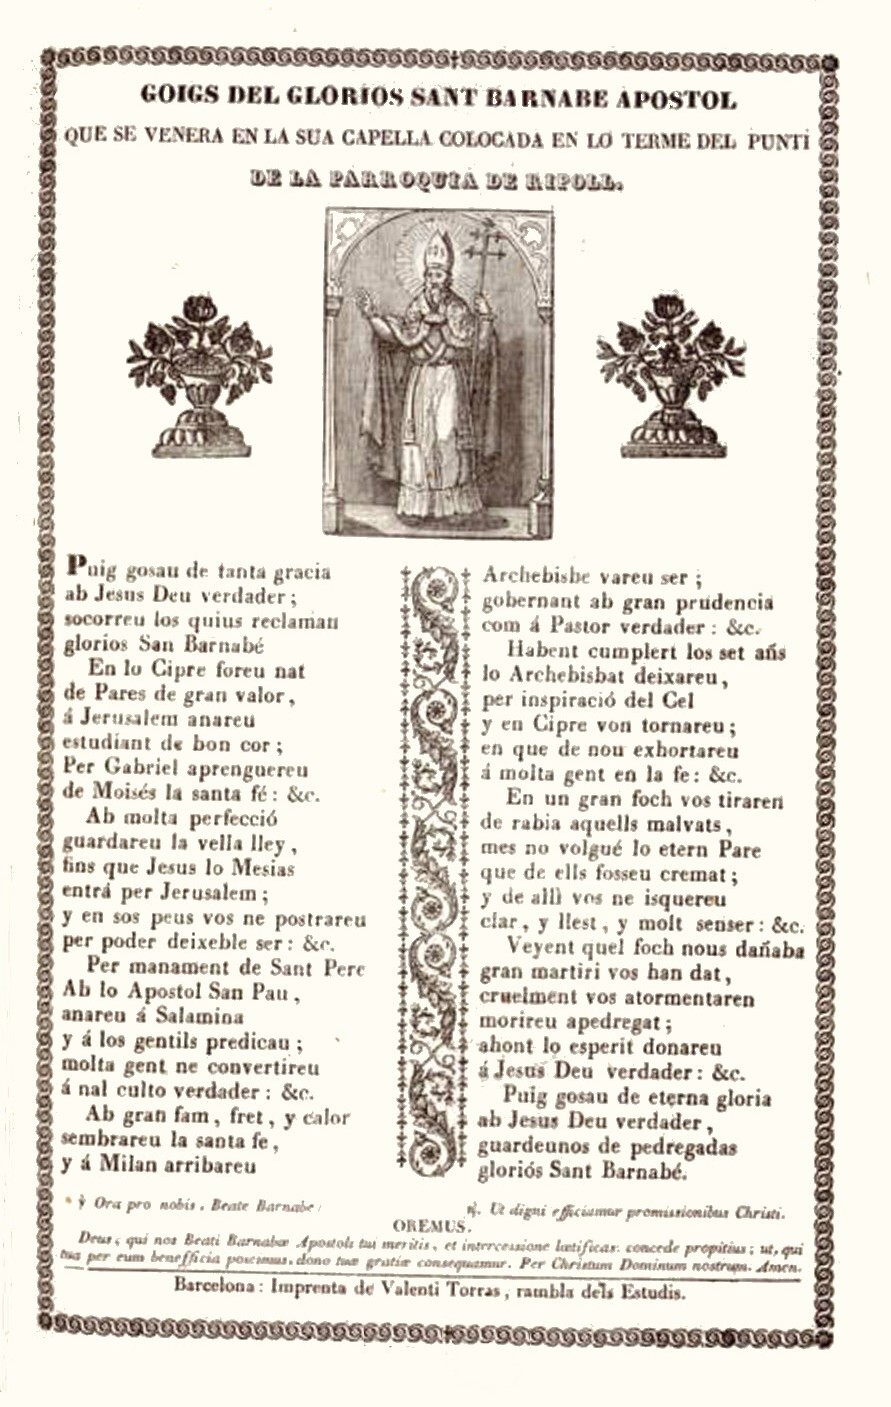 GOIGS DEL GLORIOS SANT BARNABE APOSTOL
QUE SE VENERA EN LA SUA CAPELLA COLOCADA EN LO TERME DEL PUNTÍ
DE LA PARROQUIA DE RIPOLL.
Puig gosau de tanta gracia
ab Jesus Deu verdader ;
socorreu los quius reclaman
glorios San Barnabé
En lo Cipre foreu nat
de Pares de gran valor ,
á Jerusalem anareu
estudiant de bon cor ;
Per Gabriel aprenguereu
de Moisés la santa fé : &c.
Ab molta perfecció
guardareu la vella lley ,
fins que Jesus lo Mesias
entrá per Jerusalem ;
y en sos peus vos ne postrareu
per poder deixeble ser : &c.
Per manament de Sant Pere
Ab lo Apostol San Pau ,
anareu á Salamina
y á los gentils predicau ;
molta gent ne convertireu
á nal culto verdader : &c.
Ab gran fam , fret , y calor
sembrareu la santa fe ,
y á Milan arribareu
Archebisbe vareu ser ;
gobernant ab gran prudencia
com á Pastor verdader : &c.
Habent cumplert los set añs
lo Archebisbat deixareu ,
per inspiració del Cel
y en Cipre von tornareu ;
en que de nou exhortareu
á molta gent en la fe : &c.
En un gran foch vos tiraren
de rabia aquells malvats ,
mes no volgué lo etern Pare
que de ells fosseu cremat ;
y de allì vos ne isquereu
clar , y llest , y molt senser : &c.
Veyent quel foch nous dañaba
gran martiri vos han dat ,
cruelment vos atormentaren
morireu apedregat ;
ahont lo esperit donareu
á Jesus Deu verdader : &c.
Puig gosau de eterna gloria
ab Jesus Deu verdader ,
guardeunos de pedregadas
gloriós Sant Barnabé.
℣ Ora pro nobis , Beate Barnabe
℟. Ut digni efficiamur promissionibus Christi.
OREMUS.
Deus , qui nos Beati Barnabæ Apostols tui meritis , et intercessione lætificas : concede propitius ; ut , qui
tua per eum benefficia poscimus , dono tuæ gratiæ consequamur. Per Christum Dominum nostrum. Amen.
Barcelona : Imprenta de Valenti Torras , rambla dels Estudis.